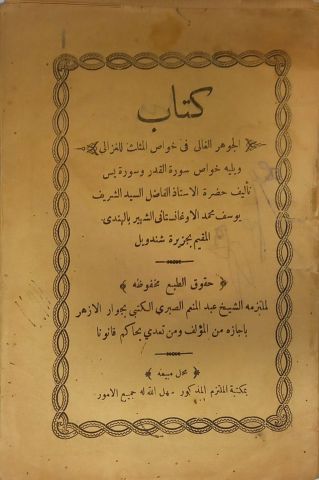 كتاب
الجوهر الغالى فى خواص المثلث للغزالى
ويليه خواص سورة القدر وسورة يس
تأليف حضرة الاستاذ الفاضل السيد الشريف
يوسف محمد الاوغانستانى الشهير بالهندى
المقيم بجزيرة شندويل
حقوق الطبع محفوظه
لملتزمه الشيخ عبد المنعم الصبرى الكتبى بجوار الازهر
باجازه من المؤلف ومن تعدى يحاكم قانونا
محل مبيعه
بمكتبة الملتزم المذكور سهل الله له جميع الامور